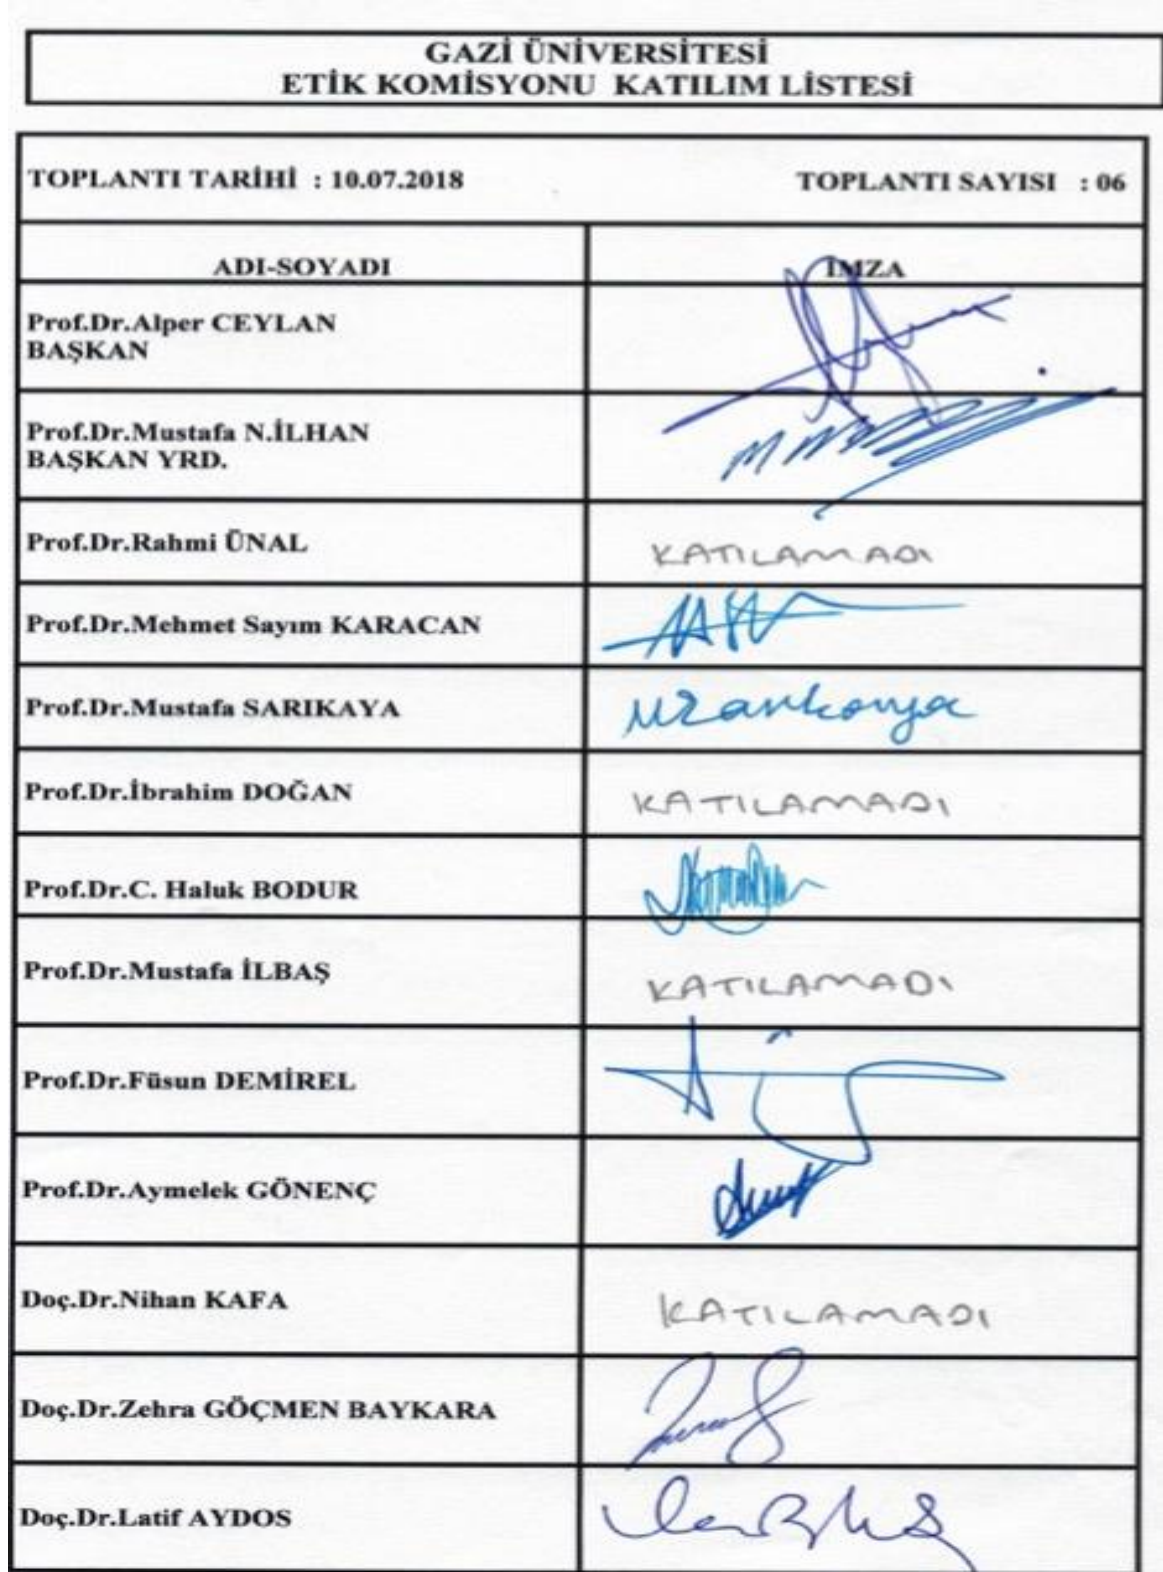 GAZİ ÜNİVERSİTESİ
ETİK KOMİSYONU KATILIM LİSTESİ
TOPLANTI TARİHİ : 10.07.2018 TOPLANTI SAYISI : 06
ADI-SOYADI İMZA
Prof.Dr.Alper CEYLAN
BAŞKAN
Prof.Dr.Mustafa N.İLHAN
BAŞKAN YRD.
Prof.Dr.Rahmi ÜNAL KATILAMADI
Prof.Dr.Mehmet Sayım KARACAN
Prof.Dr.Mustafa SARIKAYA
Prof.Dr.İbrahim DOĞAN KATILAMADI
Prof.Dr.C. Haluk BODUR
Prof.Dr.Mustafa İLBAŞ KATILAMADI
Prof.Dr.Füsun DEMİREL
Prof.Dr.Aymelek GÖNENÇ
Doç.Dr.Nihan KAFA KATILAMADI
Doç.Dr.Zehra GÖÇMEN BAYKARA
Doç.Dr.Latif AYDOS